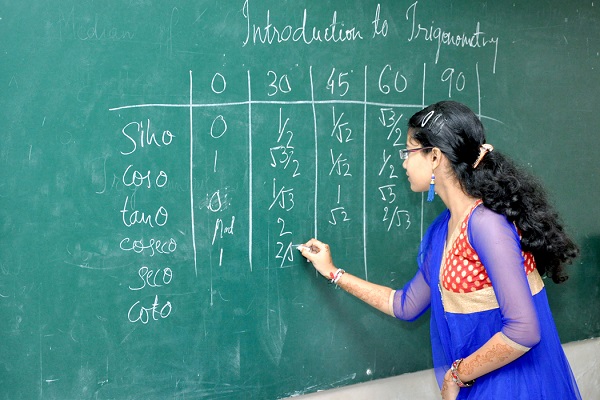 Median of
Introduction to Trigonometry
0 30 45 60 90
Sinθ 0 1/2 1/√2 √3/2
cosθ 1 √3/2 1/√2 1/2
tanθ 0 1/√3 1 √3
cosecθ 2 √2 2/√3
secθ 1 2/√
cotθ